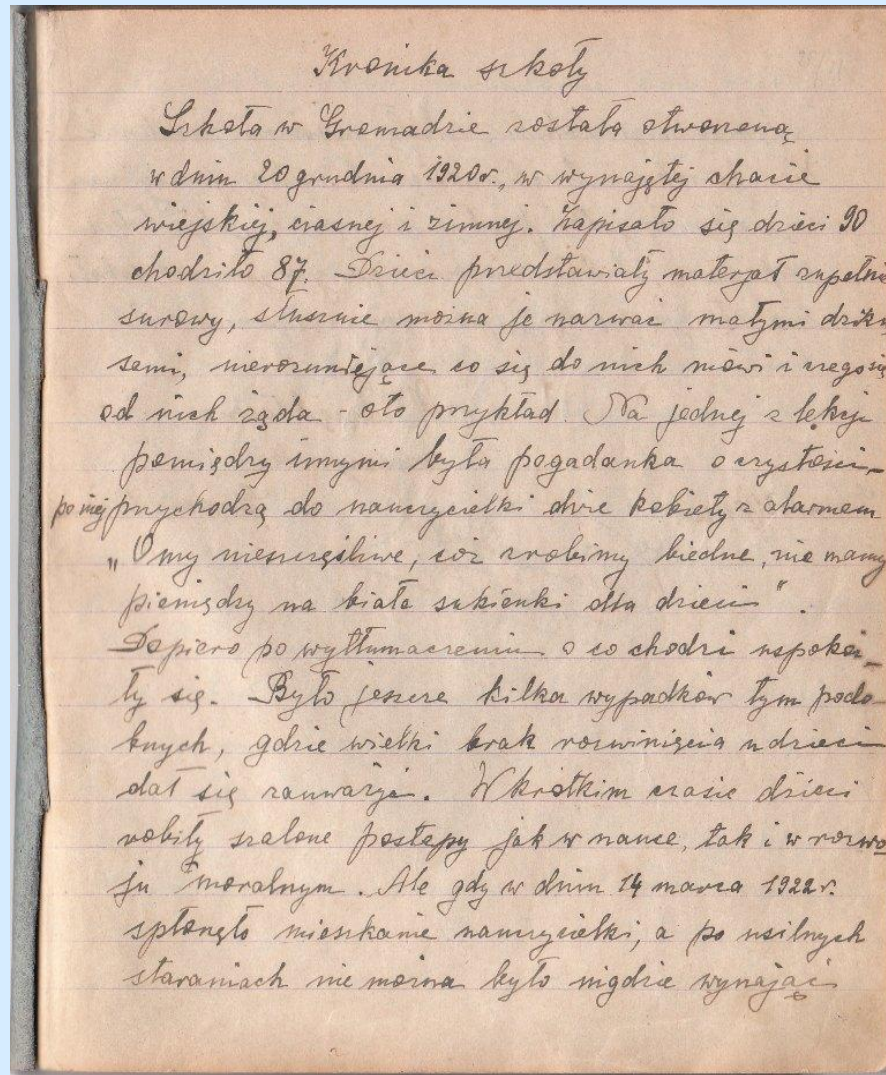 Kronika szkoły
Szkoła w Gromadzie została otworzoną
w dniu 20 grudnia 1920r., w wynajętej chacie
wiejskiej, ciasnej i zimnej. Zapisało się dzieci 90
chodziło 87. Dzieci przedstawiały materjał zupełnie
surowy, słusznie można je nazwać małymi dziku
sami, nierozumiejące co się do nich mówi i czego się
od nich żąda - oto przykład. Na jednej z lekcji
pomiędzy innymi była pogadanka o czystości -
po niej przychodzą do nauczycielki dwie kobiety z alarmem
„O my nieszczęśliwe, cóż zrobimy biedne, nie mamy
pieniędzy na białe sukienki dla dzieci".
Dopiero po wytłumaczeniu o co chodzi uspokoi-
ły się. Było jeszcze kilka wypadków tym podo-
bnych, gdzie wielki brak rozwinięcia u dzieci
dał się zauważyć. W krótkim czasie dzieci
robiły szalone postępy jak w nauce, tak i w rozwo
ju moralnym. Ale gdy w dniu 14 marca 1922r.
spłonęło mieszkanie nauczycielki, a po usilnych
staraniach nie można było nigdzie wynająć